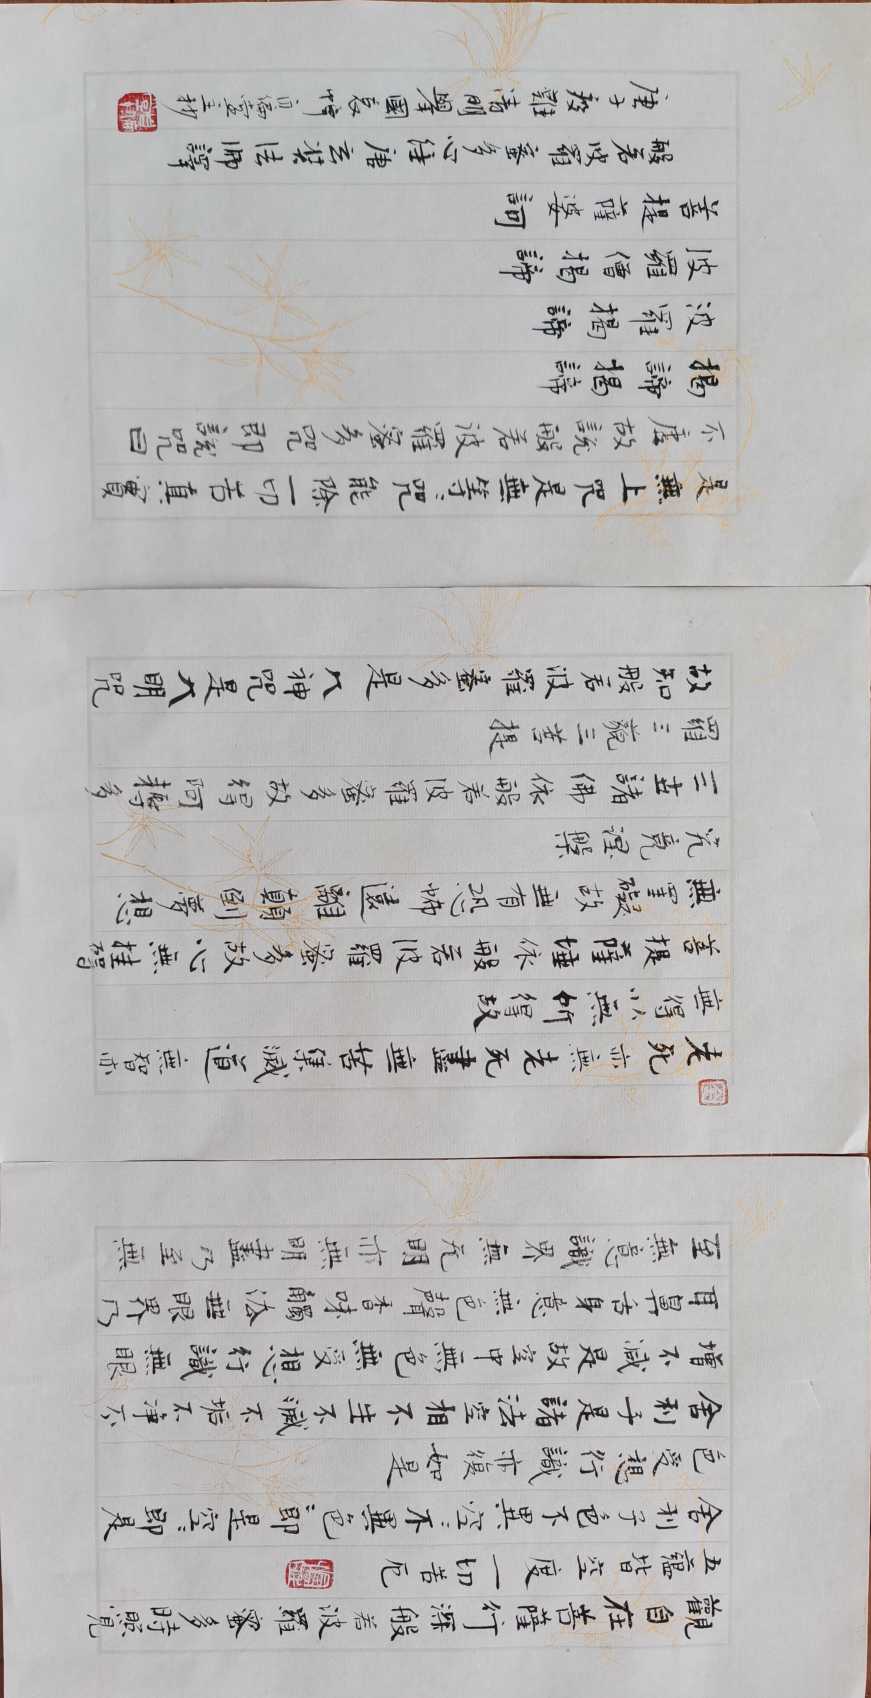 觀自在菩薩行深般若波羅蜜多時照見
五蘊皆空度一切苦厄
舍利子色不異空〻不異色〻即是空〻即是
色受想行識亦復如是
舍利子是諸法空相不生不滅不垢不淨不
增不減是故空中無色無受想行識無眼
耳鼻舌身意無色聲香味觸法無眼界乃
至無意識界無无明亦無明盡乃至無
老死亦無老死盡無苦集滅道無智亦
無得以無所得故
菩提薩埵依般若波羅蜜多故心無挂礙
無罣礙故無有恐怖遠離顛倒夢想
究竟涅槃
三世諸佛依般若波羅蜜多故得阿耨多
羅三藐三菩提
故知般若波羅蜜多是大神咒是大明咒
是無上咒是無等〻咒能除一切苦真實
不虛故說般若波羅蜜多咒即說咒曰
揭諦揭諦
波羅揭諦
波羅僧揭諦
菩提薩婆訶
般若波羅蜜多心經唐玄奘法師譯
庚子清明舉國哀悼室主抄